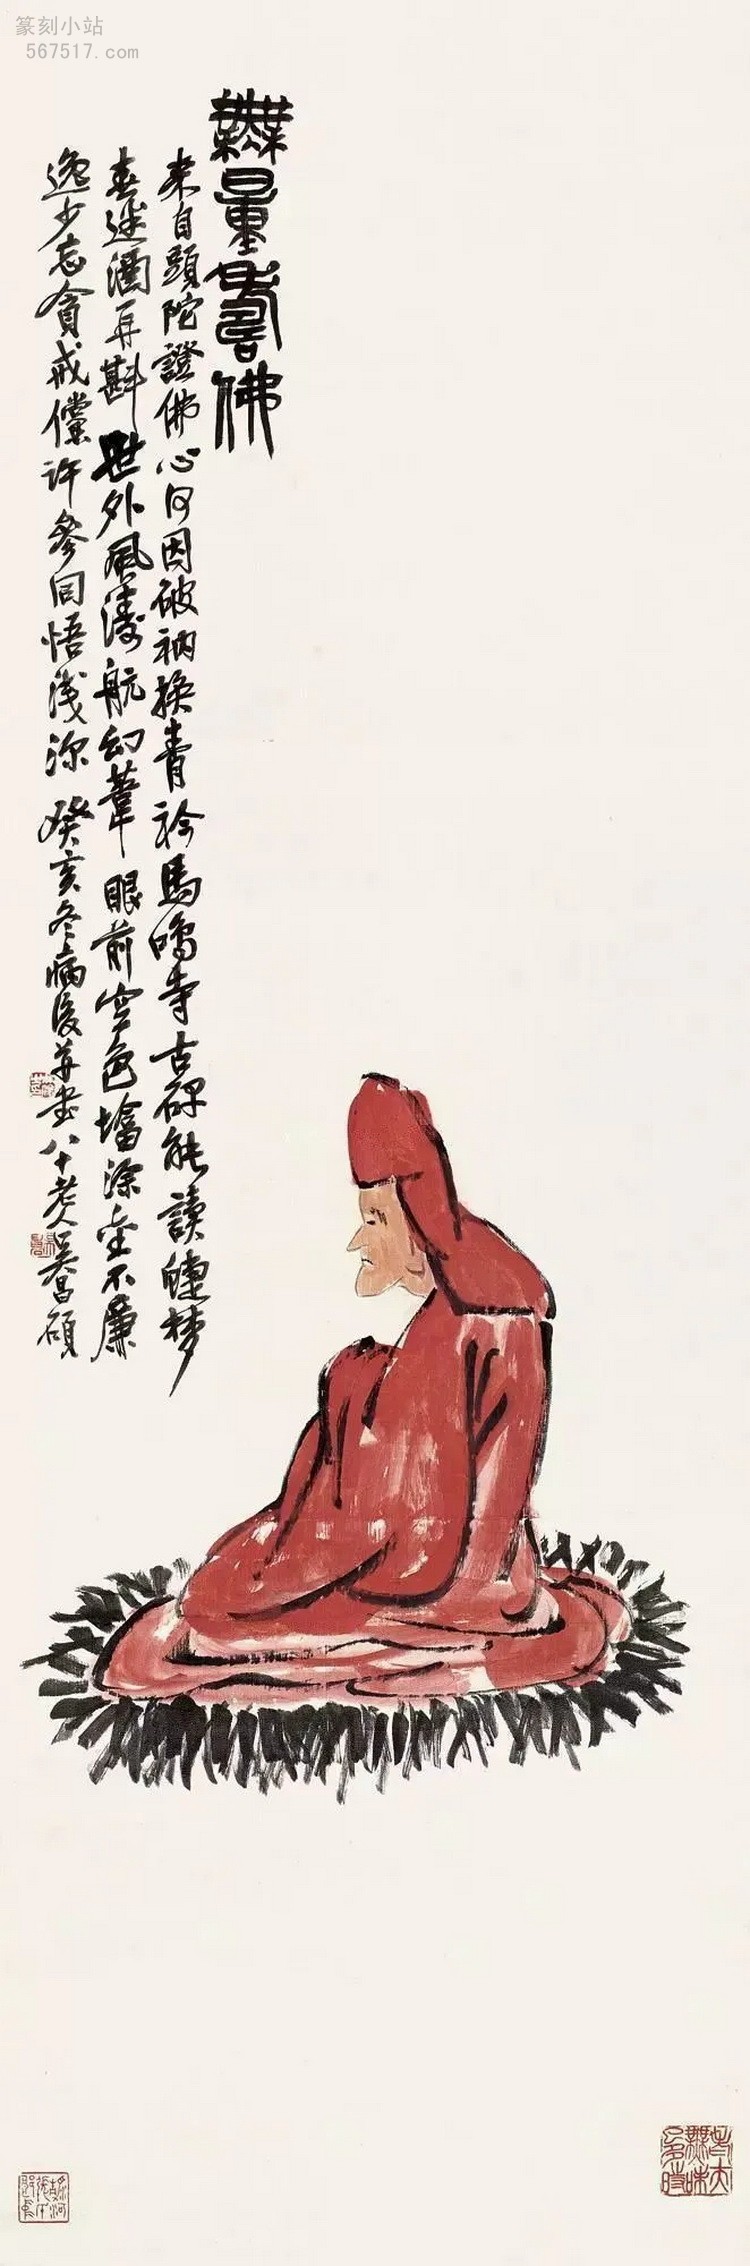 篆刻小站
567517.com
無量壽佛
来自頭陀證佛心何因破衲換青衿馬鳴寺古碑能讀蝶梦
春迷酒再斟世外風濤航幻葦眼前空色塔涂金不廉
逸少忘貪戒儻許參同悟浅深 癸亥冬病後并書八十老人吴昌碩